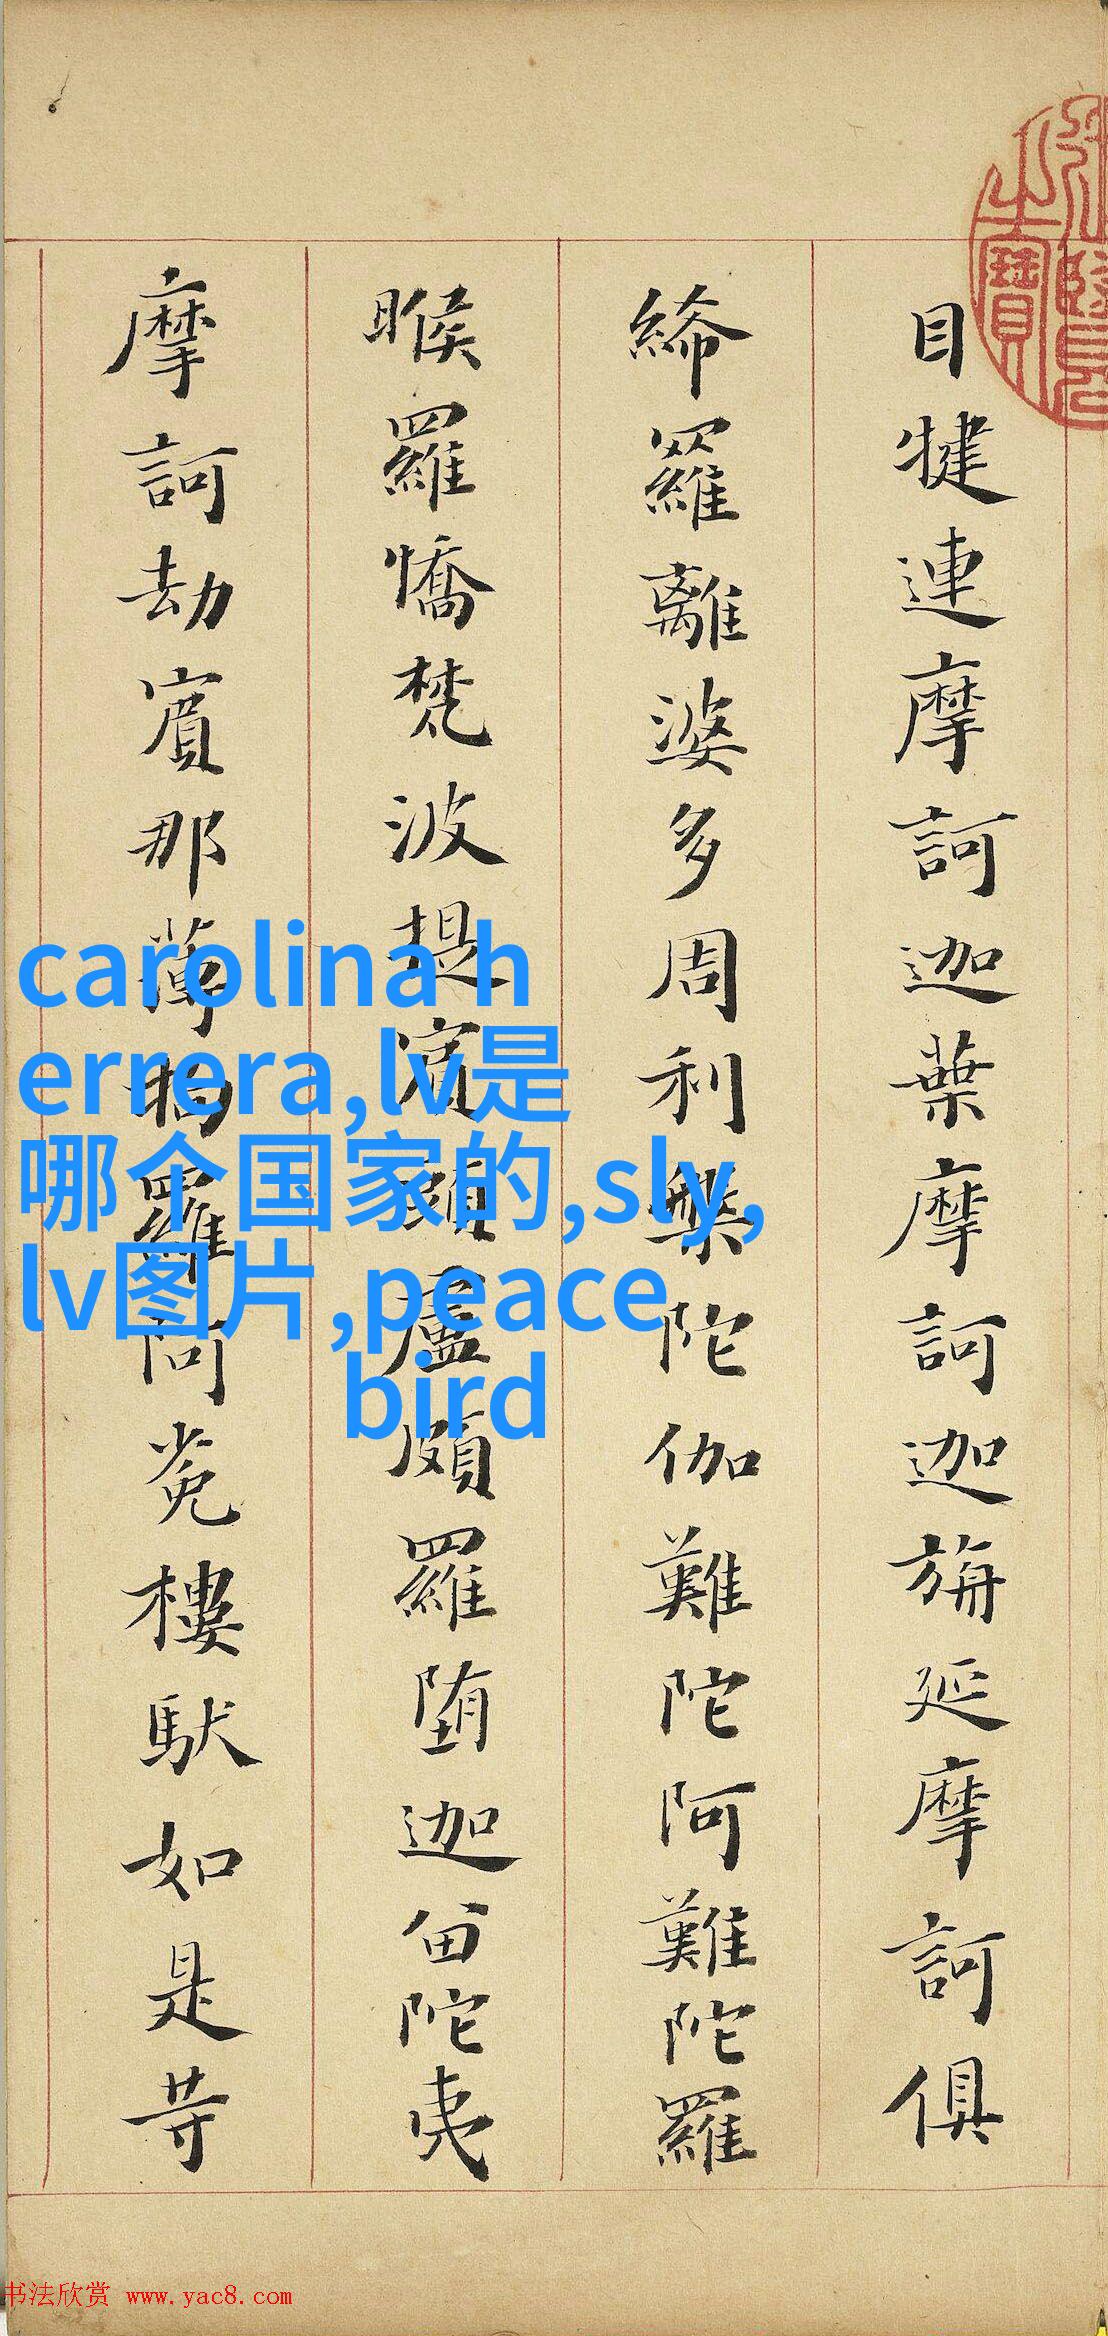 目犍連摩訶迦葉摩訶迦旃延摩訶俱
絺羅離婆多周利槃陀伽難陀阿難陀羅
睺羅憍梵波提賓頭盧頗羅堕迦留陀夷
摩訶劫賓那薄拘羅阿㝹樓馱如是等
carolina h
errera,lv是
哪个国家的,sly,
lv图片,peace
bird
书法欣赏 www.yac8.com